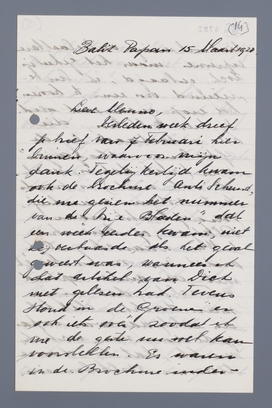 (14)
Zalit Papan 15 Maart 1920
Lieve Menno,
Verleden week dreef
je brief van 7 Februari hier
binnen, waarvoor mijn
dank. Tegelijkertijd kwam
ook de brochure
die me gezien het nummer
van de "Vrije Bladen" dat
een week eerder kwam niet
zo verbaasde als het geval
geweest was, wanneer ik
dat artikel van Dick
niet gelesen had. Tevens
stond in de Groene er
ook iets over zoodat ik
me de gang nu wel kan
voorstellen. Er waren
in de Brochure onder-